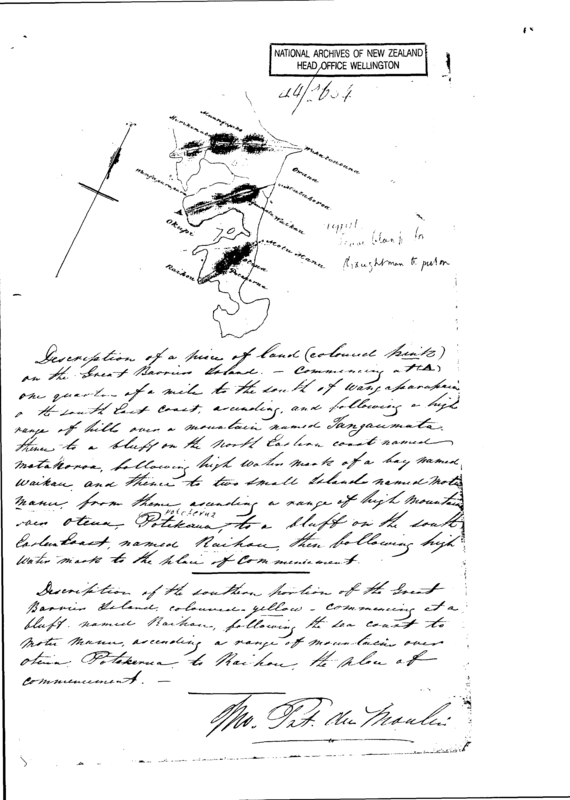 NATIONAL ARCHIVES OF NEW ZEALAND
HEAD OFFICE WELLINGTON
44/2604
Okupe
Motu Manu
Raihou
Draughtman to
Description of a piece of land (coloured pink)
on the Great Barrier Island. – Commencing at (▲)
one quarter of a mile to the south of Wangaparapara
the south East coast, ascending, and following a high
range of hills over a mountain named Tangaumata.
thence to a bluff on the north Eastern coast named
matakoroa, following high water mark of a bay named
Waikau, and thence to two small Islands named motu
manu, from thence ascending a range of high mountains
Oteua, to a bluff on the south
Eastern Coast, named Raihou, then following high
water mark to the place of Commencement.
Description of the southern portion of the Great
Barrier Island, coloured yellow – commencing at a
bluff named Raihou, following the sea coast to
motu manu, ascending a range of mountains over
Oteua, Potakerua to Raihou, the place of
commencement. –
Jno. Pat. du Moulin